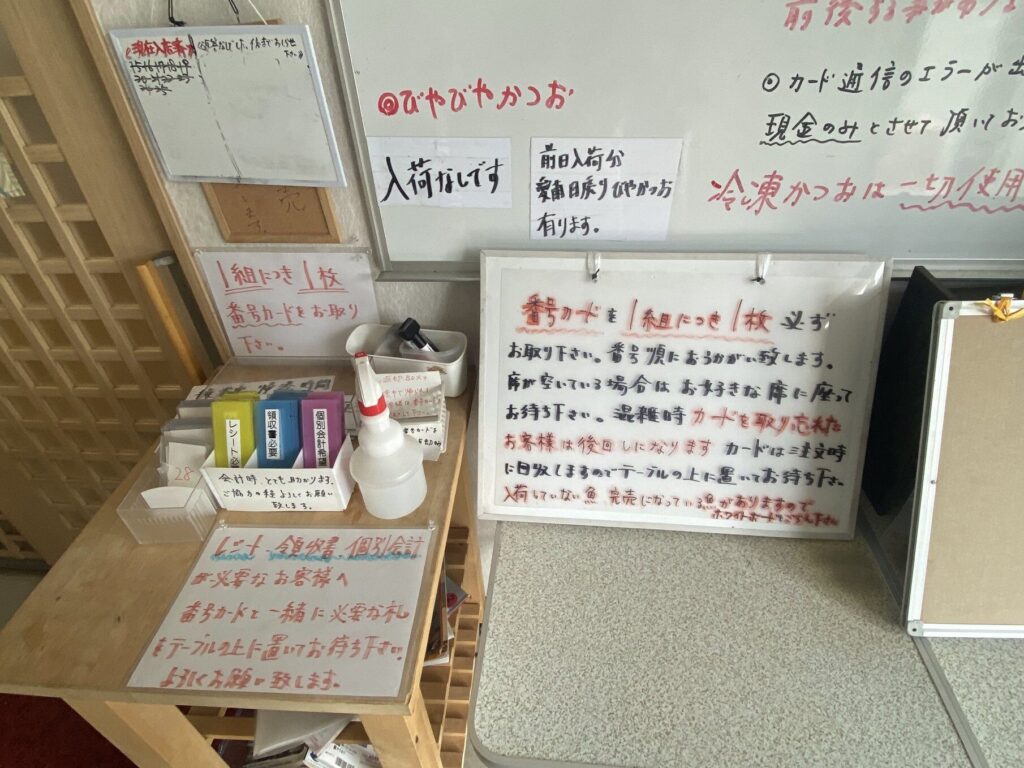 現在入店番号
15・16・17・18・19
前後する事があ
◎びやびやかつお
◎カード通信のエラーが出
現金のみとさせて頂いてお
冷凍かつおは一切使用
入荷なしです
前日入荷分
愛南日戻りびやかつお
有ります。
1組につき1枚
番号カードをお取り
下さい。
番号カードを1組につき1枚必ず
お取り下さい。番号順におうかがい致します。
席が空いている場合はお好きな席に座って
お待ち下さい。混雑時カードを取り忘れた
お客様は後回しになります カードは注文時
に回収しますのでテーブルの上に置いてお待ち下さい
入荷していない魚 完売になっている魚がありますので
ホワイトボードでご覧下さい
レシート必
領収書必要
個別会計希望
28
会計時、とても助かります。
ご協力の程よろしくお願い
致します。
レシート・領収書・個別会計
が必要なお客様へ
番号カードと一緒に必要な札
をテーブルの上に置いてお待ち下さい。
よろしくお願い致します。